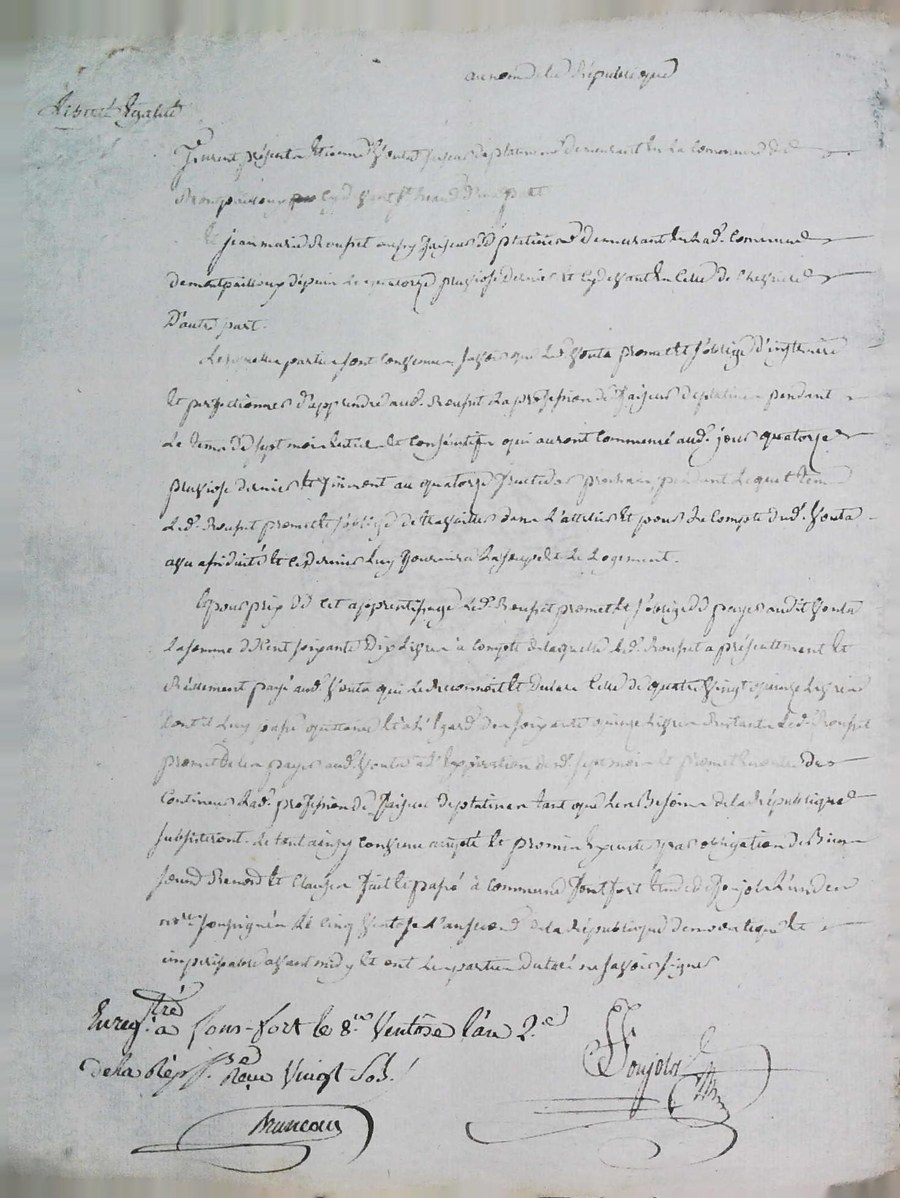 au nom de la République
Liberté Egalité
furent présents Etienne Vouta faiseur de platines demeurant en la commune de
Montpailloux cy devant St heand d'une part
Et jean marie Rouset aussy faiseur de platines demeurant en lad. commune
de montpailloux depuis le quatorze pluviose dernier et cy devant en celle de chevrieres
D'autre part.
Lesquelles parties sont convenues savoir que led. Vouta promet et s'oblige d'instruire
et perfectionner d'apprendre aud. Rouset la profession de faiseur de platines pendant
le tems de sept mois entiers et consécutifs qui auront commencé aud. jour quatorze
pluviose dernier et finiront au quatorze fructidor prochain, pendant lequel tems
led. Rouset promet et s'oblige de travailler dans l'attelier et pour le compte dud. Vouta
avec assiduité et ce dernier luy fournira la soupe et le logement.
Et pour prix de cet apprentissage led. Rouset promet et s'oblige de payer audit Vouta
la somme de cent soixante dix livres à compte de laquelle led. Rouset a présentement et
réellement payé aud. Vouta qui le reconnoit et declare celle de quatre vingt quinze livres
dont il luy passe quittance et à l'égard des soixante quinze livres restantes led. Rouset
promet de les payer aud. Vouta à l'expiration desd. sept mois et promet en outre de
continuer lad. profession de faiseur de platines tant que les besoins de la république
subsisteront. Le tout ainsy convenu accepté et promis exécuter par obligation de biens
soumis renonc. et clauses fait et passé à commune font fort etude de Jonjolz l'un des
nores soussignés le cinq ventose l'an second de la république democratique et
impérissable avant midy et ont les parties declaré ne savoir signer
Enregtré. à Fons-fort le 8.me Ventôse l'an 2.e
de la Rép. Reçu Vingt Sols.
Bruneau
Jonjolz